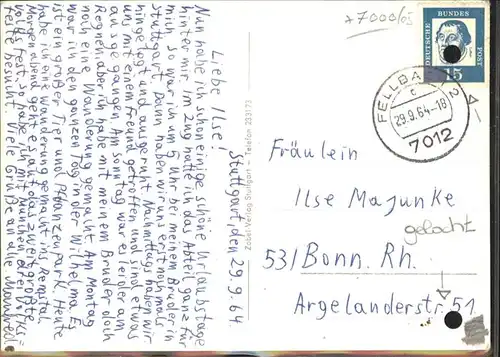 Stuttgart, den 29.9.64
Liebe Ilse!
Nun habe ich schon einige schöne Urlaubstage
hinter mir. Im Zug hatte ich das Abteil ganz für
mich, so war ich um 5 Uhr bei meinem Bruder in
Stuttgart. Dann haben wir uns erst nochmals
hingelegt und ausgeruht. Nachmittags haben wir
uns mit einem Freund getroffen und sind etwas
ausgegangen. Am Sonntag war es leider am
Regnen, aber ich habe mit meinem Bruder doch
noch eine Wanderung gemacht. Am Montag
war ich den ganzen Tag in der Wilhelma. Es
ist ein großer Tier und Pflanzenpark. Heute
habe ich eine Wanderung gemacht ins Remstal
Morgen abend geht es auf das zweitgrößte
Volksfest, so habe ich mit München drei Volks-
feste besucht. Viele Grüße an alle
Zobel-Verlag Stuttgart - Telefon 233173
A7000/05
DEUTSCHE BUNDESPOST
15
FELLBACH 2
c
29.9.64-18
7012
Fräulein
Ilse Majunke
gelocht
53/Bonn. Rh.
Argelanderstr. 51